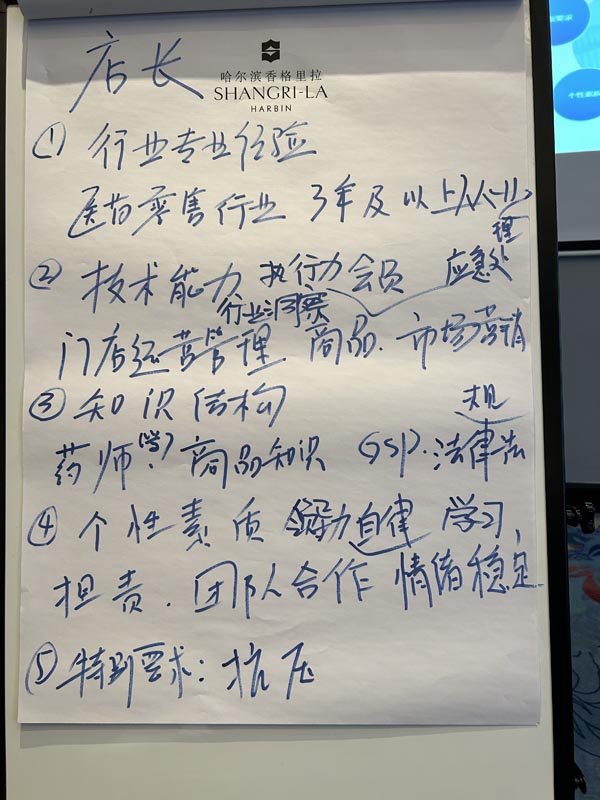 店长
哈尔滨香格里拉
SHANGRI-LA
HARBIN
① 行业专业经验
医药零售行业 3年及以上从业
② 技术能力 执行力 会员 应急处理
行业洞察
门店运营管理 商品、市场营销
③ 知识结构
药师 商品知识 GSP. 法律法规
④ 个性素质 领导力 自律 学习
担责. 团队合作 情绪稳定
⑤ 特别要求: 抗压
个性素质